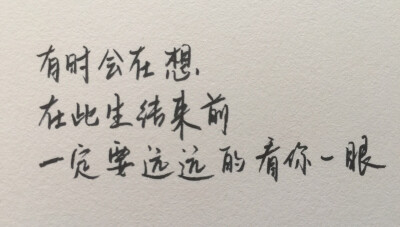 有时会在想,
在此生结束前
一定要远远的看你一眼